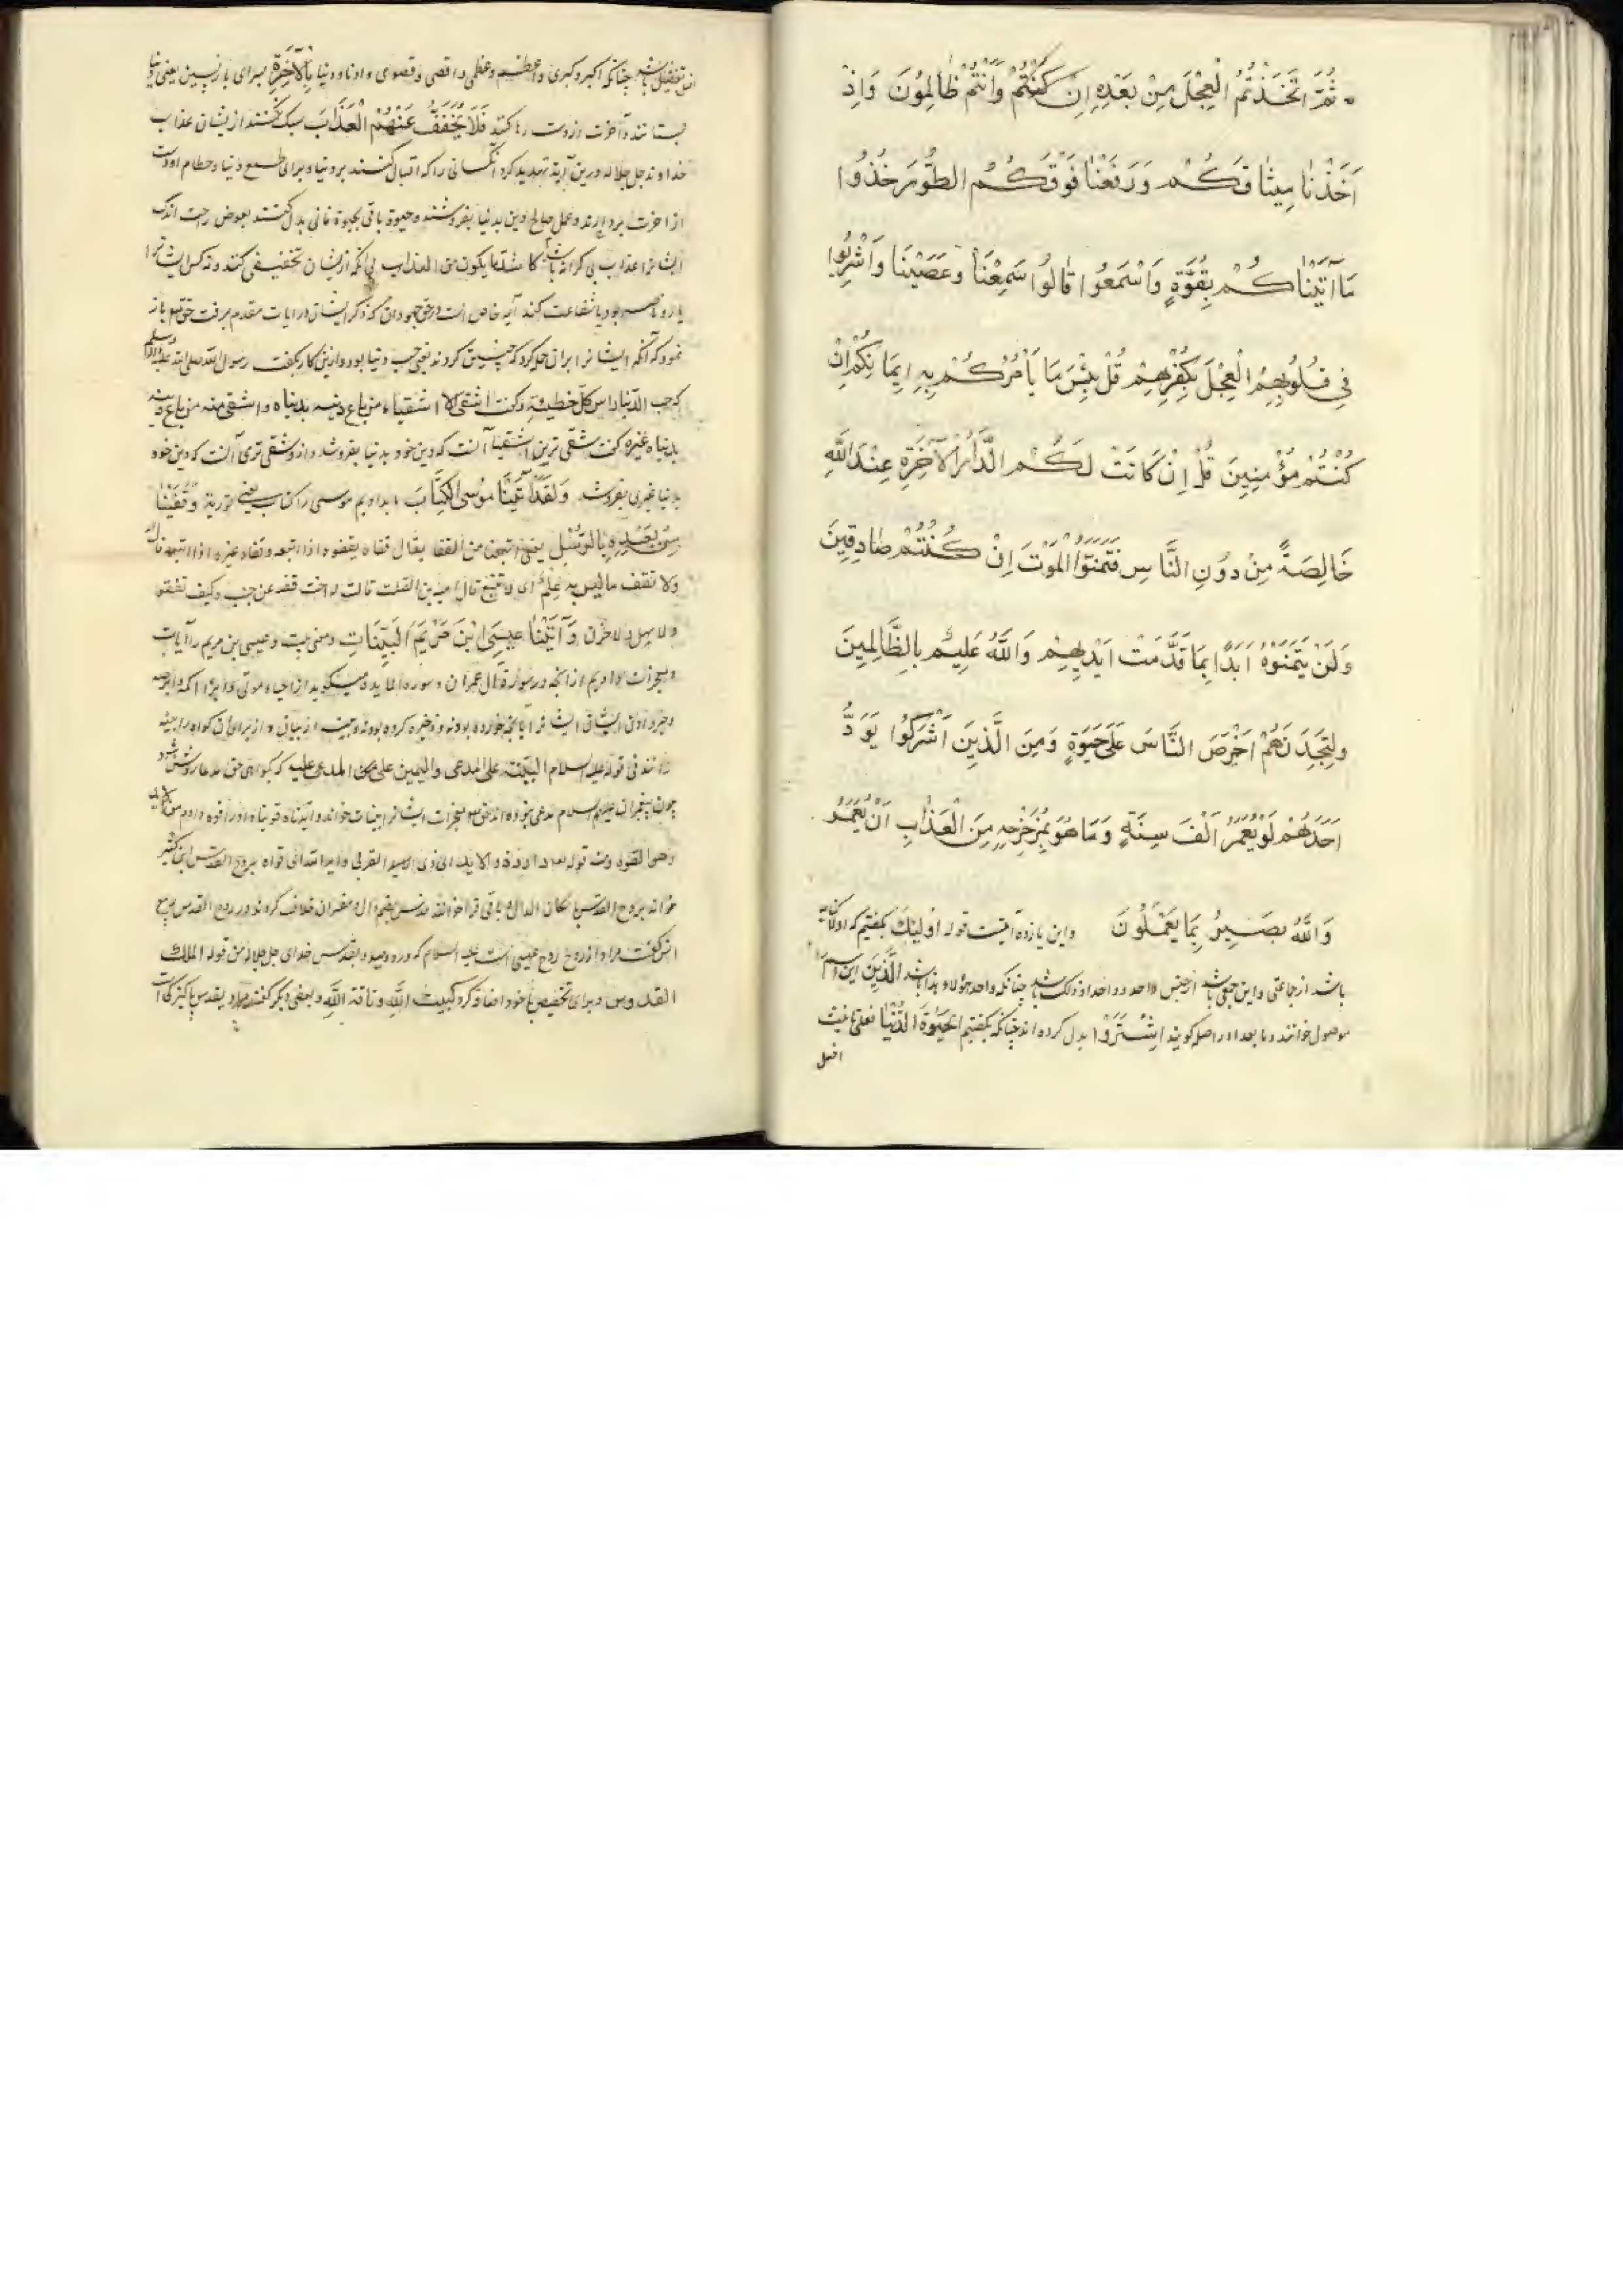 ثُمَّ اتَّخَذْتُمُ الْعِجْلَ مِنْ بَعْدِهِ اِنْ كُنْتُمْ وَاَنْتُمْ ظَالِمُونَ وَاِذْ
اَخَذْنَا مِيثَاقَكُمْ وَرَفَعْنَا فَوْقَكُمُ الطُّورَ خُذُوا
مَا آتَيْنَاكُمْ بِقُوَّةٍ وَاسْمَعُوا قَالُوا سَمِعْنَا وَعَصَيْنَا وَاُشْرِبُوا
فِي قُلُوبِهِمُ الْعِجْلَ بِكُفْرِهِمْ قُلْ بِئْسَ مَا يَأْمُرُكُمْ بِهِ اِيمَانُكُمْ اِنْ
كُنْتُمْ مُؤْمِنِينَ قُلْ اِنْ كَانَتْ لَكُمُ الدَّارُ الْآخِرَةُ عِنْدَ اللَّهِ
خَالِصَةً مِنْ دُونِ النَّاسِ فَتَمَنَّوُا الْمَوْتَ اِنْ كُنْتُمْ صَادِقِينَ
وَلَنْ يَتَمَنَّوْهُ اَبَدًا بِمَا قَدَّمَتْ اَيْدِيهِمْ وَاللَّهُ عَلِيمٌ بِالظَّالِمِينَ
وَلَتَجِدَنَّهُمْ اَحْرَصَ النَّاسِ عَلَى حَيٰوةٍ وَمِنَ الَّذِينَ اَشْرَكُوا يَوَدُّ
اَحَدُهُمْ لَوْ يُعَمَّرُ اَلْفَ سَنَةٍ وَمَا هُوَ بِمُزَحْزِحِهِ مِنَ الْعَذَابِ اَنْ يُعَمَّرَ
وَاللَّهُ بَصِيرٌ بِمَا يَعْمَلُونَ واین یازده آیتست قوله اُولٰئِكَ بگفتیم که او کنایه
باشد از جماعتی و این جمعی باشد از جنس واحد و واحد او ذلک باشد چنانکه واحد هؤلاء هذا باشد الَّذِينَ این اسم را
موصول خوانند و ما بعد او را صله گویند اشْتَرَوُا بدل کرده اند چنانکه بگفتیم الْحَيٰوةَ الدُّنْيَا فعلی تانیث
افعل
افعل تفضیل باشد چنانکه اکبر و کبری و اعظم و عظمی و اقصی و قصوی و ادنا و دنیا بِالْآخِرَةِ بسرای بازپسین یعنی دنیا
بستانند و آخرت از دست رها کنند فَلَا يُخَفَّفُ عَنْهُمُ الْعَذَابُ سبک نکنند از یشان عذاب
خداوند جل جلاله درین آیه تهدید کرد آنکسانی را که اقبال کنند بر دنیا و برای طمع دنیا و حطام او دست
از آخرت بردارند و عمل صالح و دین بدنیا بفروشند و حیوة باقی بحیوة فانی بدل کنند بعوض راحت اندک
ایشانرا عذاب بی کرانه باشد کما یکون من العذاب بی آنکه ازیشان تخفیفی کنند و نه کس ایشانرا
یار و ناصر بود یا شفاعت کند آیه خاص است در حق جهودان که ذکر ایشان در آیات مقدم برفت حق تعالی باز
نمود که آنکه ایشانرا بران حمل کرد که چنین کردند یعنی حب دنیا بود و ازین کار بگفت رسول الله صلی الله علیه و آله وسلم
که حب الدنیا راس کل خطیئة و گفت اشقی الاشقیاء من باع دینه بدنیاه و اشقی منه من باع دینه
بدنیاء غیره گفت شقی ترین اشقیا آنست که دین خود بدنیا بفروشد و ازو شقی تر آنست که دین خود
بدنیا غیری بفروشد وَلَقَدْ آتَيْنَا مُوسَى الْكِتَابَ ما بدادیم موسی را کتاب یعنی توریة وَقَفَّيْنَا
مِنْ بَعْدِهِ بِالرُّسُلِ یعنی اتبعنا من القفا یقال قفاه یقفوه اذا اتبعه و قفاه غیره اذا اتبعه
ولا تقف ما لیس لك به علم ای لا تتبع قال امیة بن الصلت قالت لاخت له قصیه عن جنب وکیف تقفو
ولا سهل ولا حزن وَآتَيْنَا عِيسَى ابْنَ مَرْيَمَ الْبَيِّنَاتِ و عیسی بن مریم را آیات
و معجزات دادیم از آنچه در سوره آل عمران و سوره المائده میگوید از احیاء موتی و ابراء اکمه و ابرص
و خبر دادن ایشانرا آنچه خورده بودند و ذخیره کرده بودند و بینت از بیان و از برای آن گواه را بینه
خوانند فی قوله علیه السلام البینة علی المدعی والیمین علی المدعی علیه که بگواهی حق مدعا روشن شود
چون پیغمبران علیهم السلام مدعی بوده اند حق تعالی معجزات ایشانرا بینات خواند وایدناه قویناه او را قوه دادیم من الاید
وهو القوه ومنه قوله تعالی داود ذا الاید ای ذی القوة وایده الله ای قواه بروح القدس ابن کثیر
خواند بروح القدس باسکان الدال و باقی قرا خوانند بضم دال و مفسران خلاف کردند در روح القدس ربیع
انس گفت مراد از روح روح عیسی است علیه السلام که درو دمید و بقدس خدای جل جلاله من قوله الملك
القدوس و برای تخصیص باخود اضافه کرد کبیت الله و ناقة الله و بعضی دیگر گفتند مراد بقدس پاکیزگی است